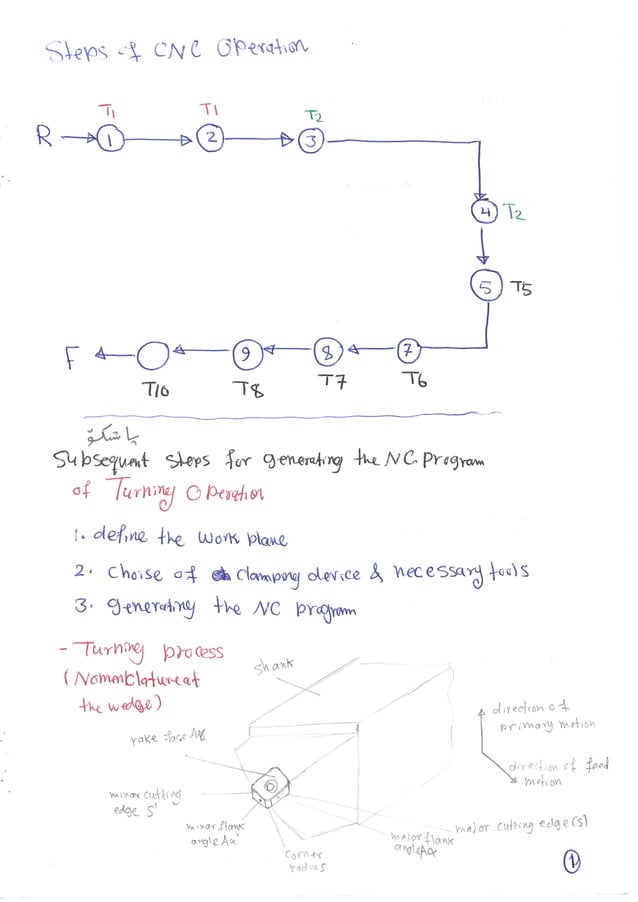 Steps of CNC Operation
T1 T1 T2
R 1 2 3
4 T2
5 T5
F 9 8 7
T10 T8 T7 T6
پاشکۆ
Subsequent steps for generating the NC. program
of Turning Operation
1. define the work plane
2. Choise of clamping device & necessary tools
3. generating the NC program
- Turning process
(Nomenclature at
the wedge)
shank
direction of
primary motion
rake face
direction of feed
motion
minor cutting
edge S'
minor flank
angle Aα'
corner
radius
major flank
angle Aα
major cutting edge (S)
1